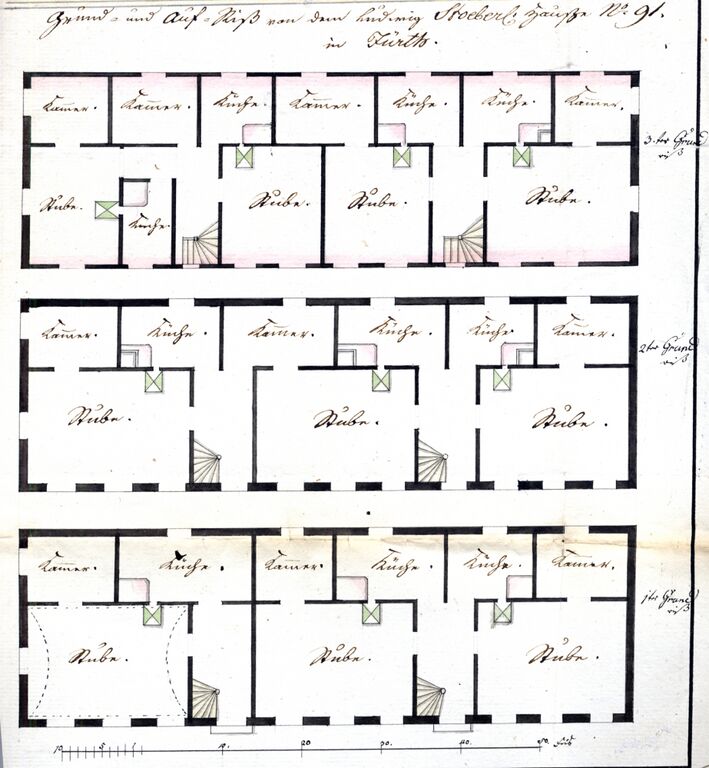 Grund- und Auf-Riß von dem Ludwig Stoeberl. Hauße No 91.
in Fürth.
Kam̅er. Kam̅er. Küche. Kam̅er. Küche. Küche. Kam̅er.
3.ter Grund
riß
Stube. Küche. Stube. Stube. Stube.
Kam̅er. Küche. Kam̅er. Küche. Küche. Kam̅er.
2ter Grund
riß
Stube. Stube. Stube.
Kam̅er. Küche. Kam̅er. Küche. Küche. Kam̅er.
1ter Grund
riß
Stube. Stube. Stube.
10 5 1 10. 20 30. 40. 50. Fuß